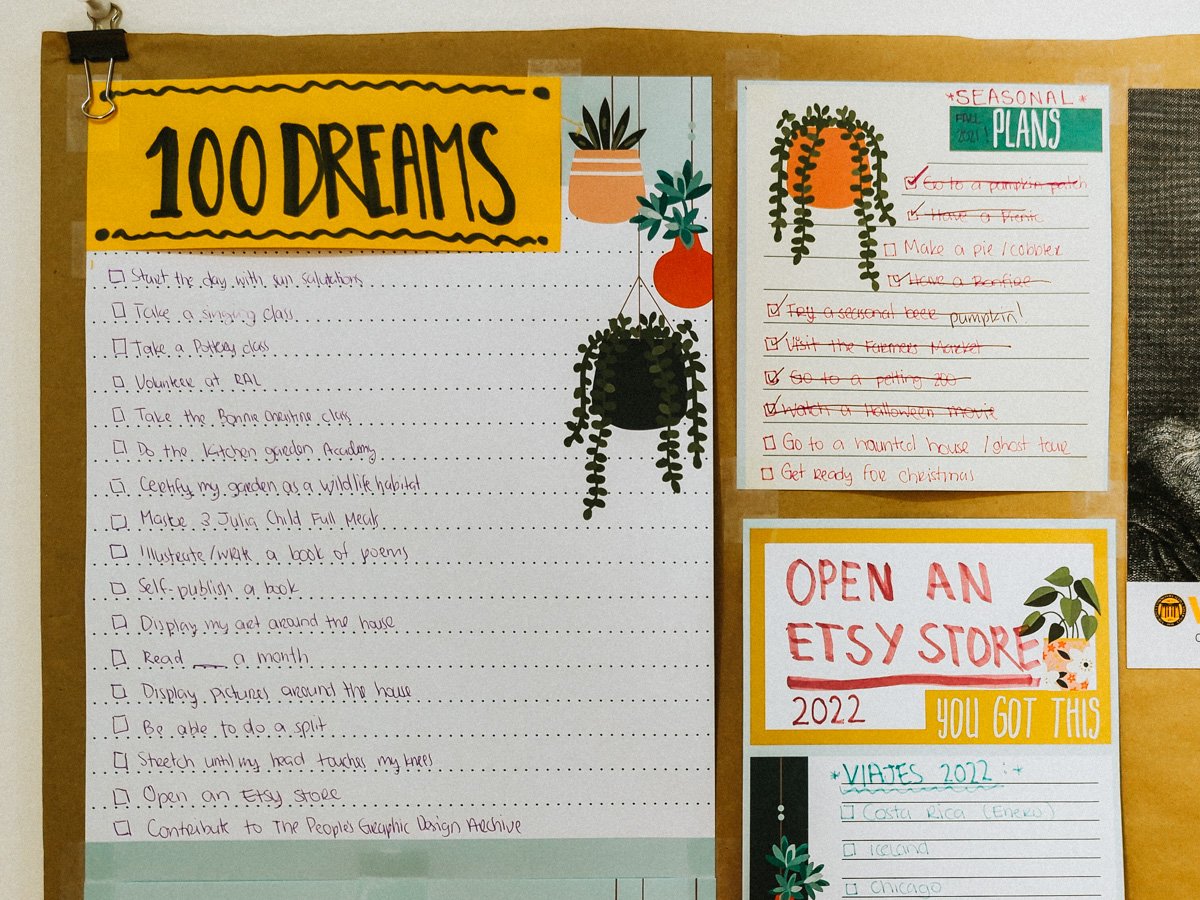 100 DREAMS
Start the day with sun salutations
Take a singing class
Take a Pottery class
Volunteer at RAL
Take the Bonnie Christine class
Do the Kitchen garden Academy
Certify my garden as a wildlife habitat
Master 3 Julia Child Full Meals
Illustrate/write a book of poems
Self-publish a book
Display my art around the house
Read __ a month
Display pictures around the house
Be able to do a split
Stretch until my head touches my knees
Open an Etsy Store
Contribute to The People's Graphic Design Archive
*SEASONAL*
FALL 2021!
PLANS
Go to a pumpkin patch
Have a Picnic
Make a pie/cobbler
Have a Bonfire
Try a seasonal beer pumpkin!
Visit the Farmers Market
Go to a petting zoo
Watch a Halloween movie
Go to a haunted house /ghost tour
Get ready for christmas
OPEN AN
ETSY STORE
2022
YOU GOT THIS
*VIAJES 2022:*
Costa Rica (Enero)
Iceland
Chicago